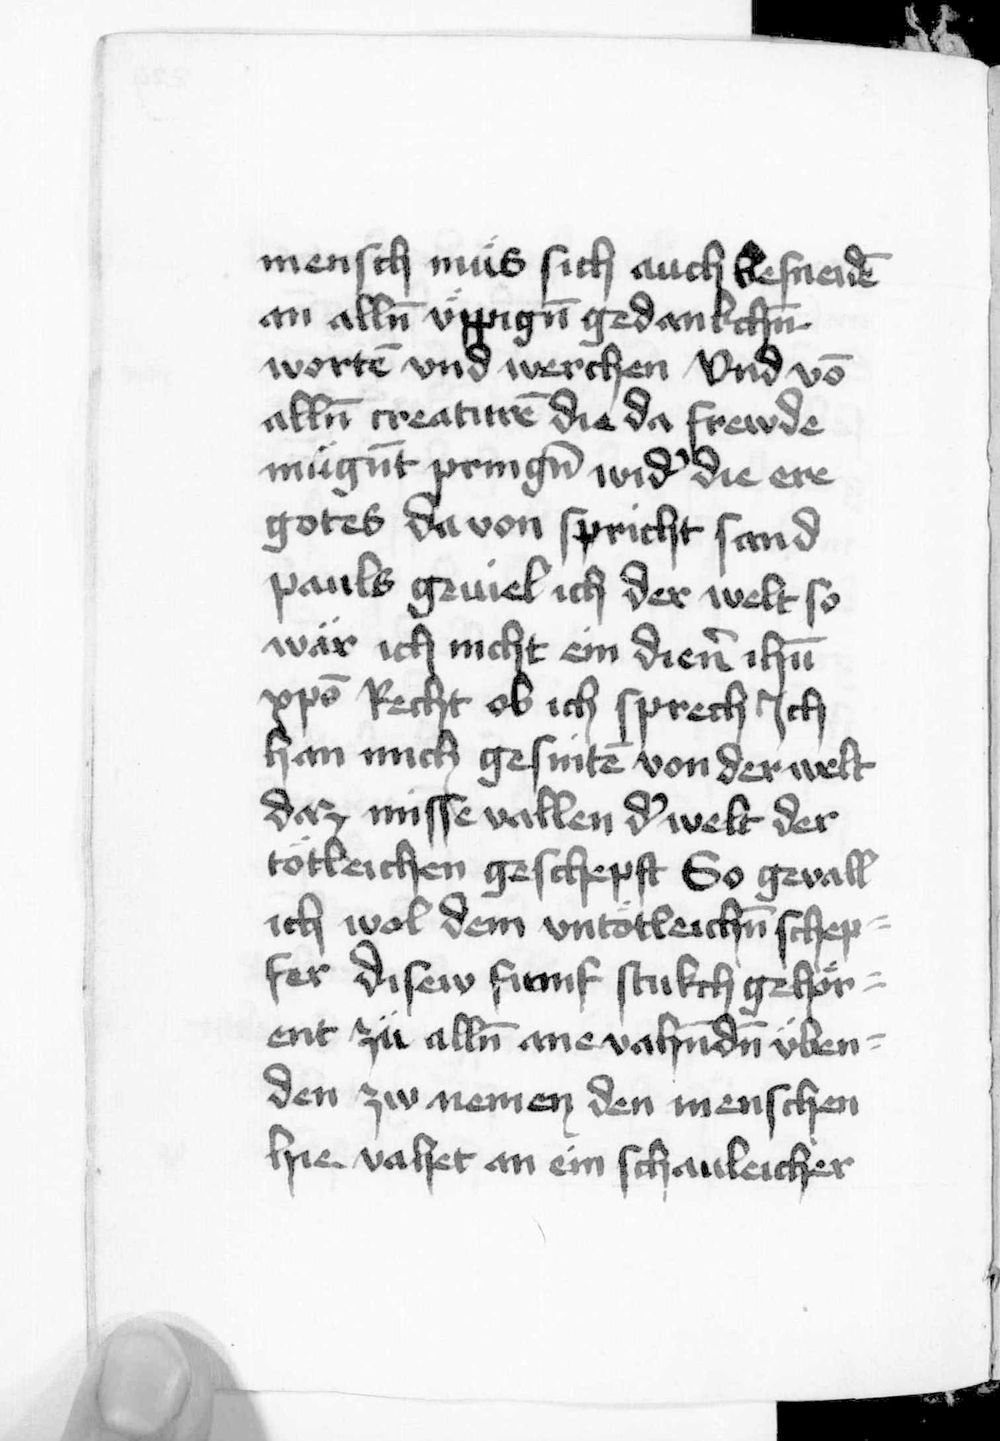 mensch müs sich auch besneidē
an alln̄ v̈ppign̄ gedankchn̄
wortē vnd werchen Vnd vō
alln̄ creaturē die da frewde
mügn̄t pringn̄ wid' die ere
gotes da von spricht sand
pauls geuiel ich der welt so
wär ich nicht ein dien' ihū
xpō Recht ob ich sprech Ich
han mich gesnitē von der welt
daz misse vallen d' welt der
tötleichen geschepft So gevall
ich wol dem vntötleichn̄ schep=
fer disew fumf stukch gehör=
ent zü alln̄ ane vahn̄dn̄ üben=
den zw nemen den menschen
hie vahet an ein schauleicher